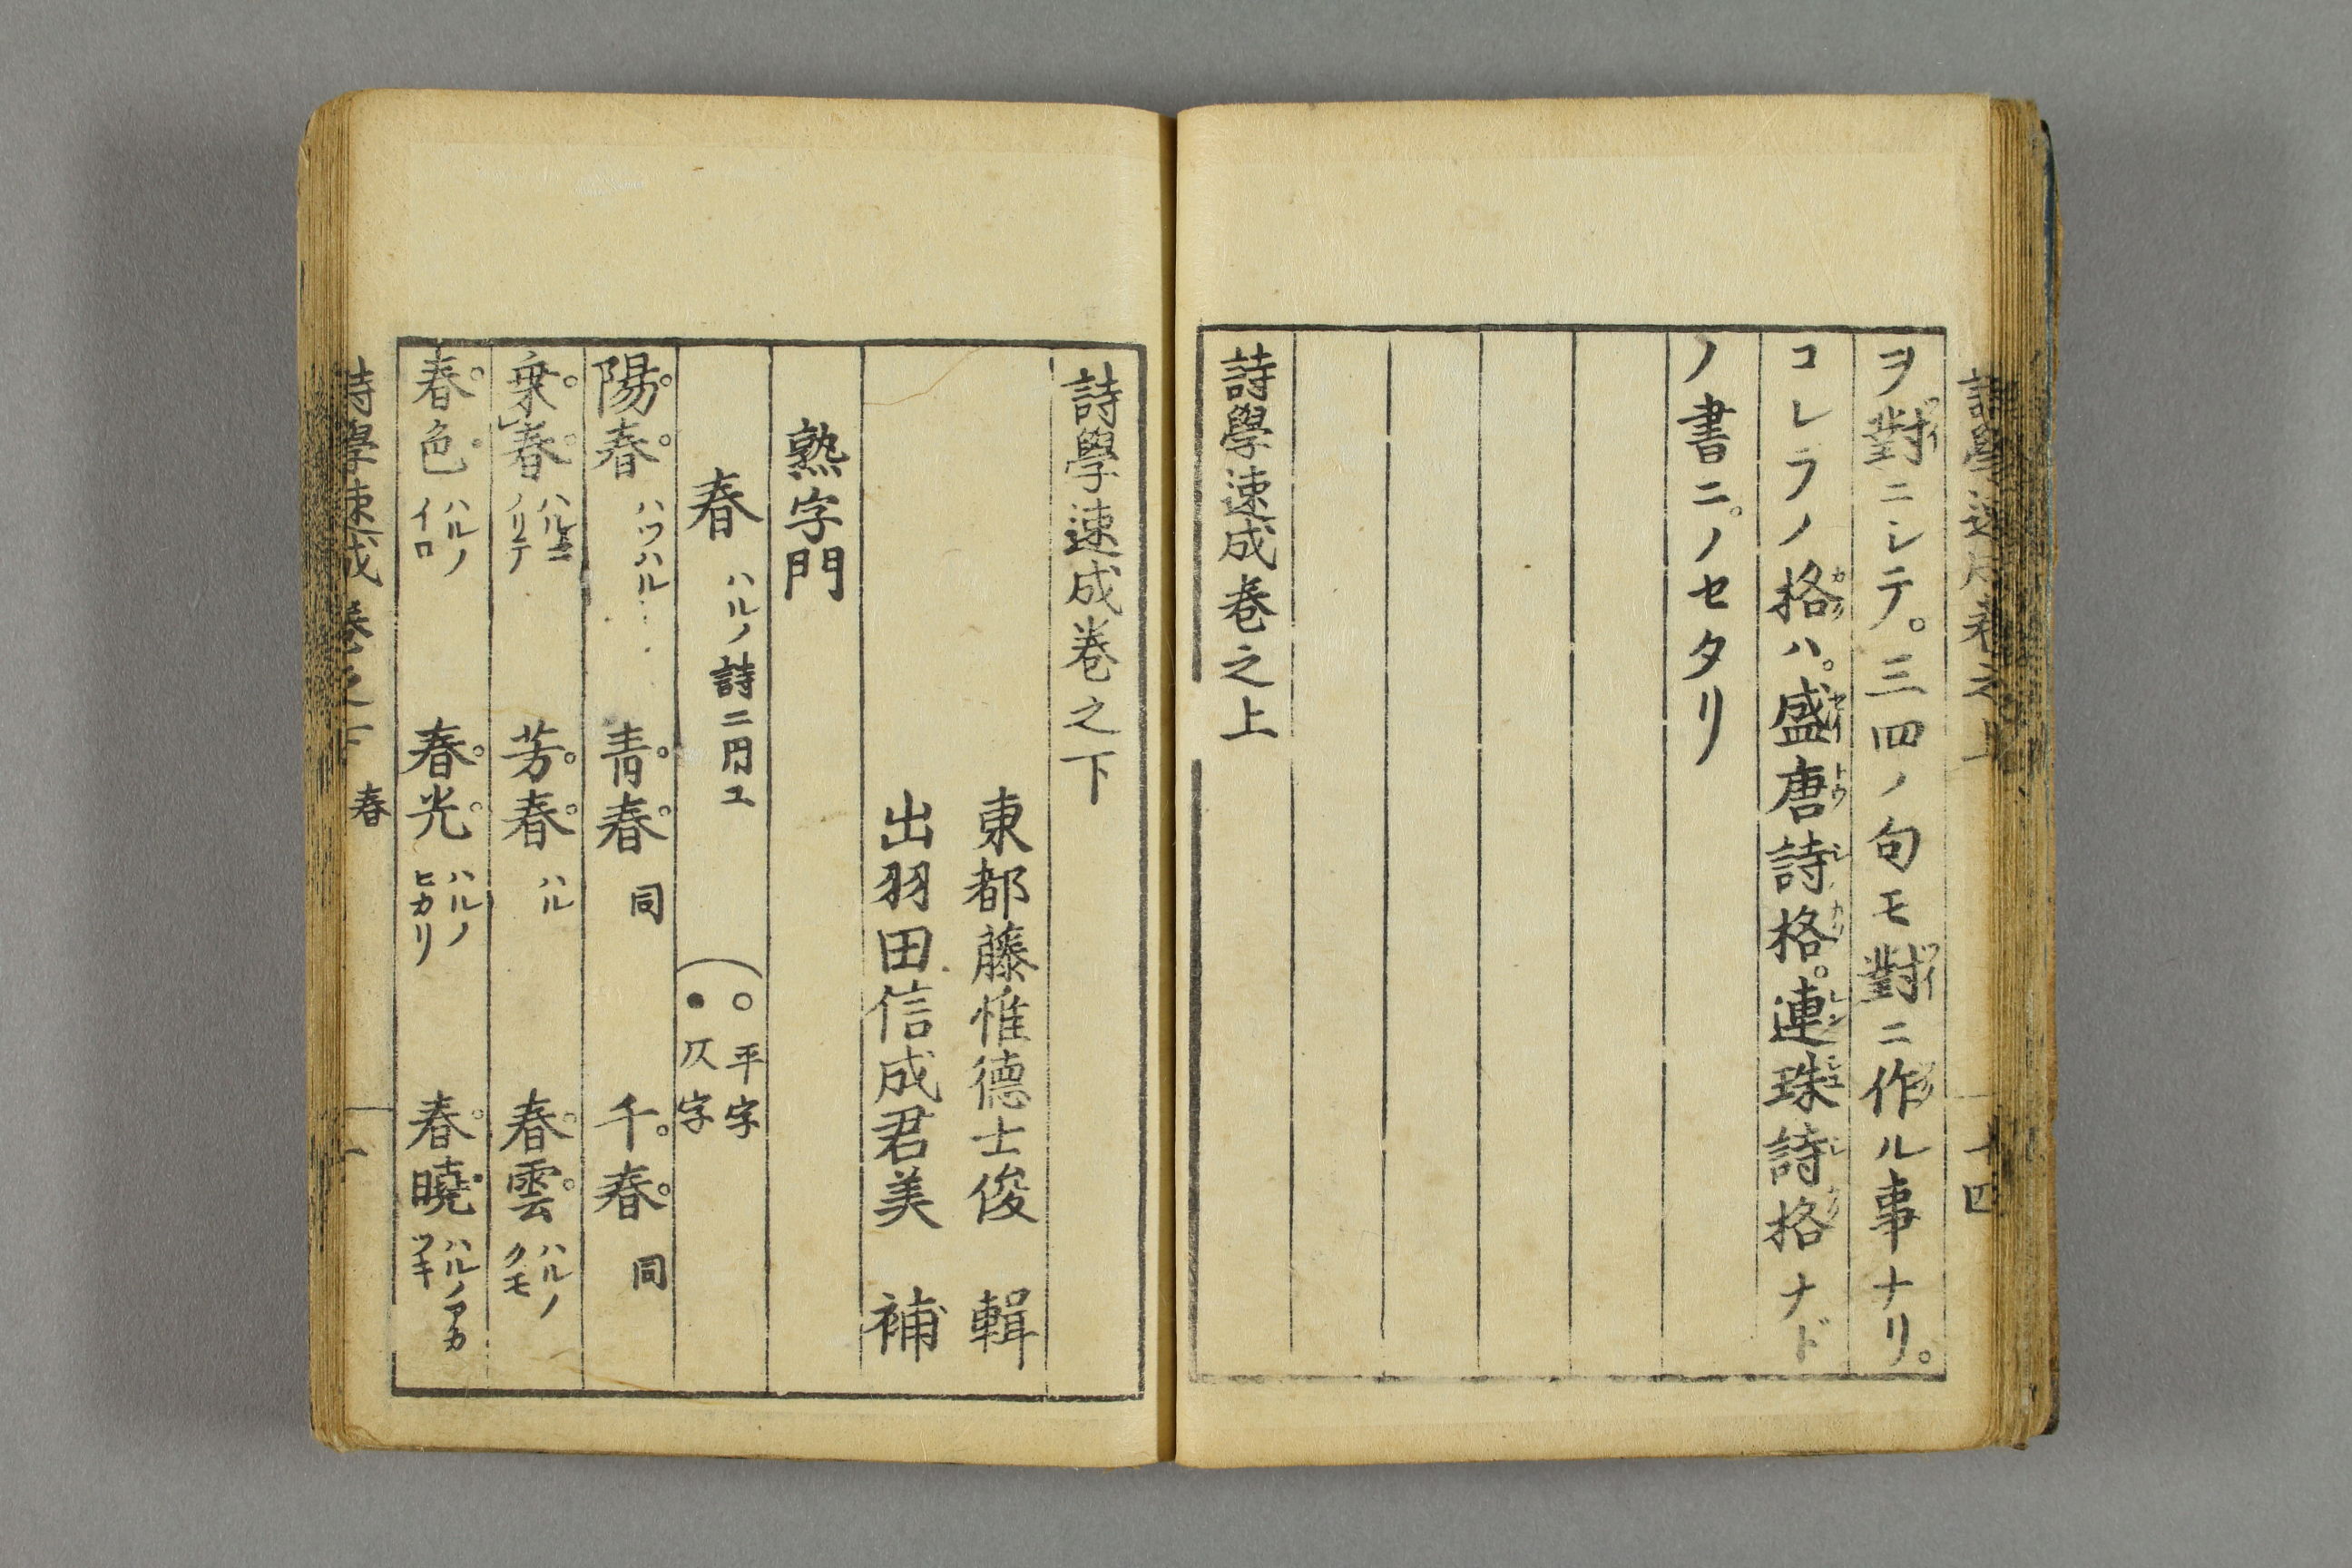 ヲ對ニシテ。三四ノ句モ對ニ作ル事ナリ。
コレラノ格ハ。盛唐詩格。連珠詩格ナド
ノ書ニ。ノセタリ
詩學速成卷之上
詩學速成卷之下
東都藤惟德士俊 輯
出羽田信成君美 補
熟字門
春 ハルノ詩ニ円ユ ○平字 ●仄字
陽春 ハツハル 青春 同 千春 同
乗春 芳春 ハル 春雲 ハルノクモ
春色 ハルノイロ 春光 ハルノヒカリ 春曉 ハルノアカツキ
詩學速成 卷之下 春